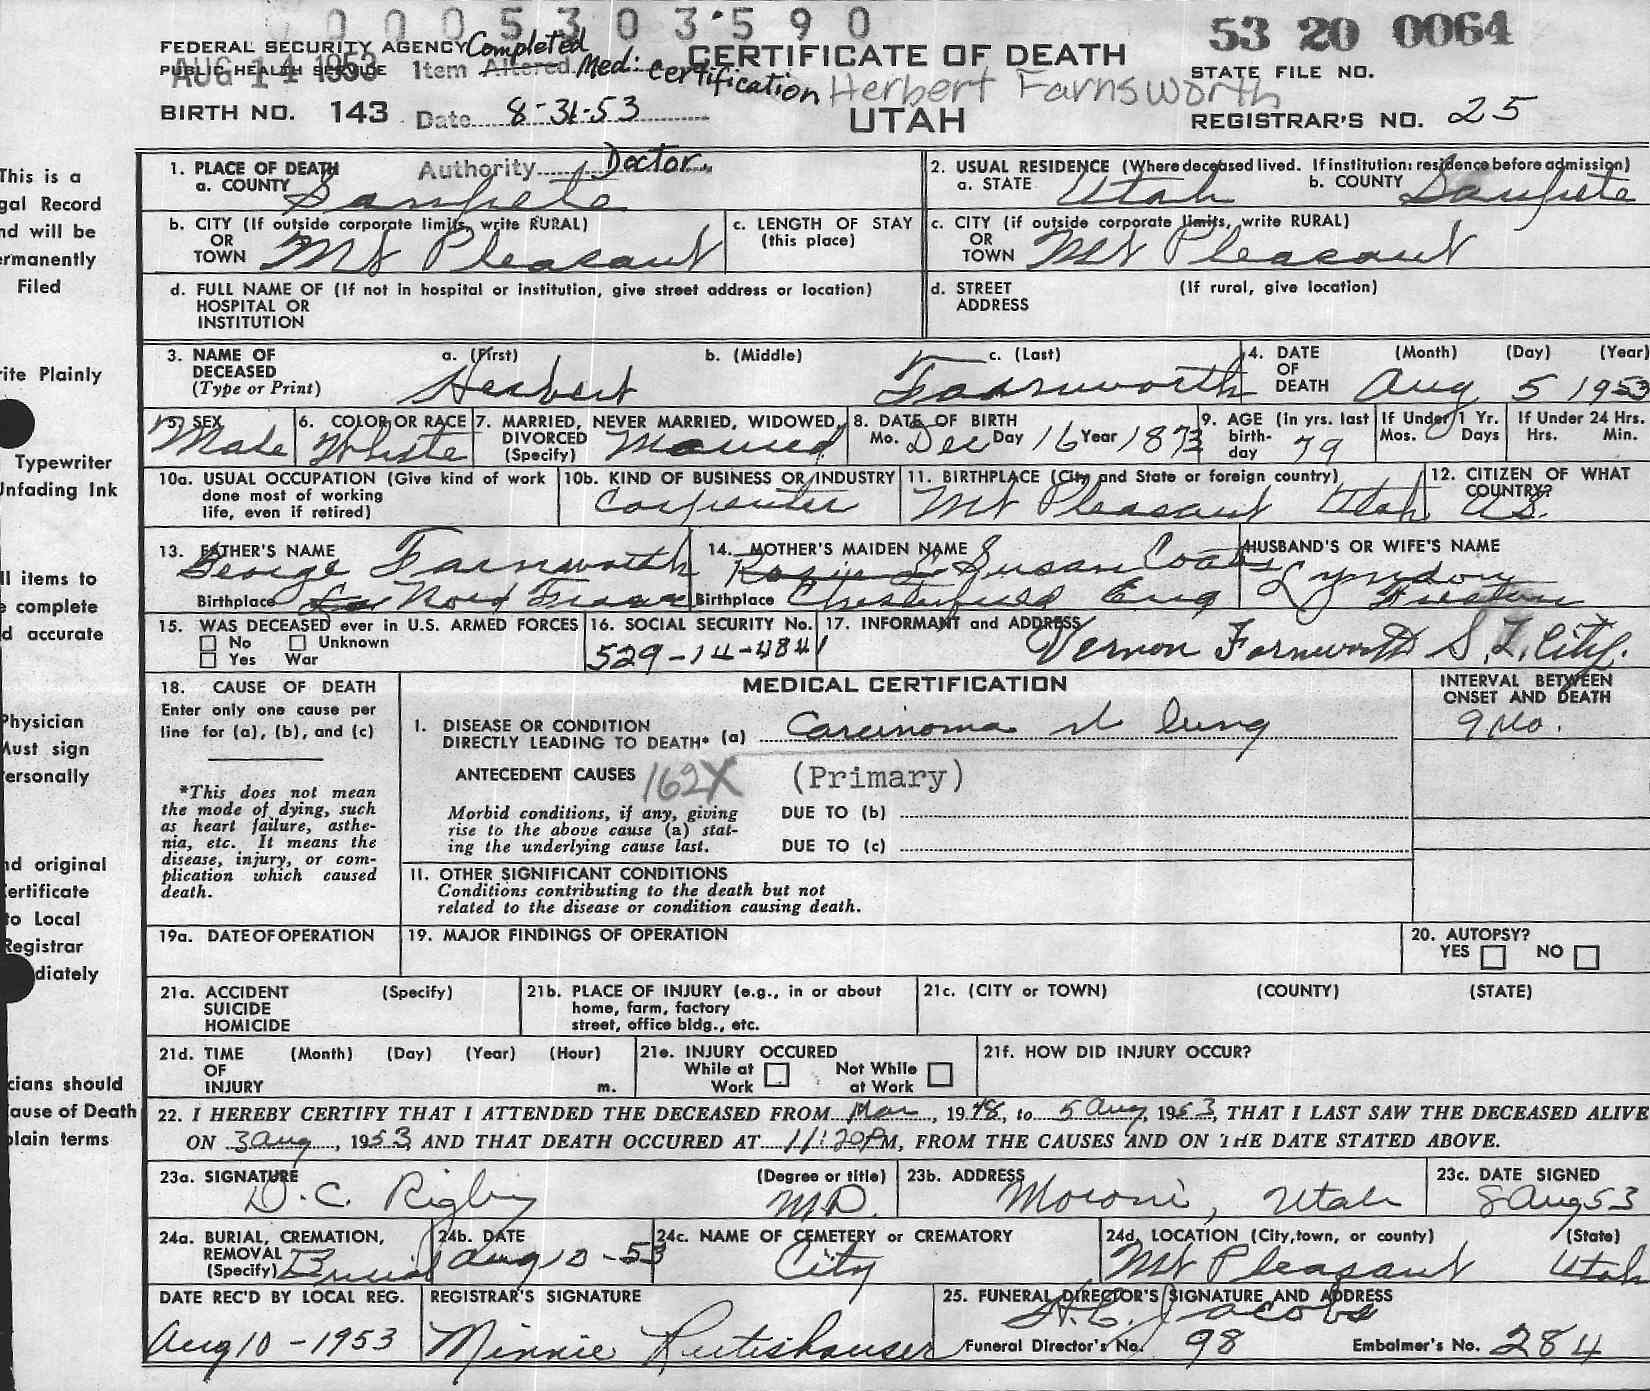 0 0 0 5 3 0 3 5 9 0
53 20 0064
FEDERAL SECURITY AGENCY Completed CERTIFICATE OF DEATH
PUBLIC HEALTH SERVICE AUG 14 1953 Item Altered Med. certification Herbert Farnsworth STATE FILE NO.
BIRTH NO. 143 Date 8-31-53 UTAH REGISTRAR'S NO. 25
This is a
gal Record
nd will be
ermanently
Filed
rite Plainly
Typewriter
Unfading Ink
ll items to
e complete
d accurate
Physician
Must sign
ersonally
nd original
ertificate
to Local
Registrar
diately
cians should
ause of Death
plain terms
1. PLACE OF DEATH Authority Doctor
a. COUNTY Sanpete
2. USUAL RESIDENCE (Where deceased lived. If institution: residence before admission)
a. STATE Utah b. COUNTY Sanpete
b. CITY (If outside corporate limits, write RURAL)
OR
TOWN Mt Pleasant
c. LENGTH OF STAY
(this place)
c. CITY (if outside corporate limits, write RURAL)
OR
TOWN Mt Pleasant
d. FULL NAME OF (If not in hospital or institution, give street address or location)
HOSPITAL OR
INSTITUTION
d. STREET (If rural, give location)
ADDRESS
3. NAME OF DECEASED (Type or Print) a. (First) b. (Middle) c. (Last)
Herbert Farnworth
4. DATE OF DEATH (Month) (Day) (Year)
Aug 5 1953
5. SEX
Male
6. COLOR OR RACE
White
7. MARRIED, NEVER MARRIED, WIDOWED,
DIVORCED
(Specify) Married
8. DATE OF BIRTH
Mo. Dec Day 16 Year 1873
9. AGE (in yrs. last birth-day 79
If Under 1 Yr.
Mos. Days
If Under 24 Hrs.
Hrs. Min.
10a. USUAL OCCUPATION (Give kind of work
done most of working
life, even if retired)
10b. KIND OF BUSINESS OR INDUSTRY
Carpenter
11. BIRTHPLACE (City and State or foreign country)
Mt Pleasant Utah
12. CITIZEN OF WHAT
COUNTRY?
U.S.
13. FATHER'S NAME
George Farnworth
Birthplace
14. MOTHER'S MAIDEN NAME
Susan Coats
Birthplace Chesterfield Eng
HUSBAND'S OR WIFE'S NAME
15. WAS DECEASED ever in U.S. ARMED FORCES
No Unknown
Yes War
16. SOCIAL SECURITY No.
529-14-4841
17. INFORMANT and ADDRESS
Vernon Farnworth S. L. City.
18. CAUSE OF DEATH
Enter only one cause per
line for (a), (b), and (c)
*This does not mean
the mode of dying, such
as heart failure, asthe-
nia, etc. It means the
disease, injury, or com-
plication which caused
death.
MEDICAL CERTIFICATION
INTERVAL BETWEEN
ONSET AND DEATH
I. DISEASE OR CONDITION
DIRECTLY LEADING TO DEATH* (a) Carcinoma rt lung
9 Mo.
ANTECEDENT CAUSES 162X (Primary)
Morbid conditions, if any, giving
rise to the above cause (a) stat-
ing the underlying cause last.
DUE TO (b)
DUE TO (c)
II. OTHER SIGNIFICANT CONDITIONS
Conditions contributing to the death but not
related to the disease or condition causing death.
19a. DATE OF OPERATION
19. MAJOR FINDINGS OF OPERATION
20. AUTOPSY?
YES NO
21a. ACCIDENT (Specify)
SUICIDE
HOMICIDE
21b. PLACE OF INJURY (e.g., in or about
home, farm, factory
street, office bldg., etc.
21c. (CITY or TOWN) (COUNTY) (STATE)
21d. TIME (Month) (Day) (Year) (Hour)
OF
INJURY m.
21e. INJURY OCCURED
While at Work Not While at Work
21f. HOW DID INJURY OCCUR?
22. I HEREBY CERTIFY THAT I ATTENDED THE DECEASED FROM Mar, 1948, to 5 Aug, 1953, THAT I LAST SAW THE DECEASED ALIVE
ON 3 Aug, 1953, AND THAT DEATH OCCURED AT 11:20 PM, FROM THE CAUSES AND ON THE DATE STATED ABOVE.
23a. SIGNATURE (Degree or title)
D. C. Rigby M.D.
23b. ADDRESS
Moroni, Utah
23c. DATE SIGNED
8 Aug 53
24a. BURIAL, CREMATION,
REMOVAL
(Specify) Burial
24b. DATE
Aug 10-53
24c. NAME OF CEMETERY or CREMATORY
City
24d. LOCATION (City, town, or county) (State)
Mt Pleasant Utah
DATE REC'D BY LOCAL REG.
Aug 10-1953
REGISTRAR'S SIGNATURE
Minnie Rutishauser
25. FUNERAL DIRECTOR'S SIGNATURE AND ADDRESS
H.C. Jacobs
Funeral Director's No. 98 Embalmer's No. 284